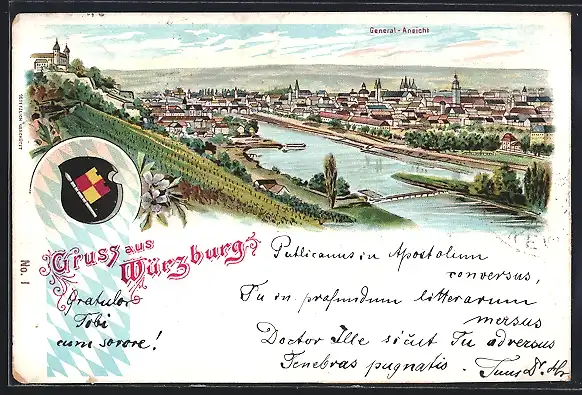 General-Ansicht
GESETZLICH GESCHÜTZT
No. 1
Gruss aus
Würzburg
Publicanus in Apostolum
conversus,
Tu in profundum litterarum
mersus
Doctor Ille sicut Tu adversus
Tenebras pugnatis.
Tuus Dr.
Gratulor
Tobi
cum sorore!